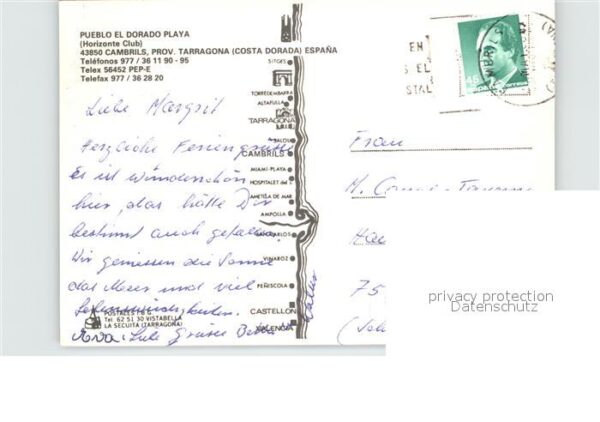 PUEBLO EL DORADO PLAYA
(Horizonte Club)
43850 CAMBRILS, PROV. TARRAGONA (COSTA DORADA) ESPAÑA
Teléfonos 977 / 36 11 90 - 95
Telex 56452 PEP-E
Telefax 977 / 36 28 20
SITGES
TORREDEMBARRA
ALTAFULLA
TARRAGONA
SALOU
CAMBRILS
MIAMI-PLAYA
HOSPITALET del I.
AMETLLA DE MAR
AMPOLLA
VINAROZ
PEÑISCOLA
CASTELLON
VALENCIA
Liebe Margrit
Herzliche Feriengrüsse
Es ist wunderschön
hier, das hätte Dir
bestimmt auch gefallen.
Wir geniessen die Sonne
das Meer und viel
Sehenswürdigkeiten.
Liebe Grüsse
Tel. 62 51 30 VISTABELLA
LA SECUITA (TARRAGONA)
EN
S EL
STAL
45
Frau
M.
75
privacy protection
Datenschutz